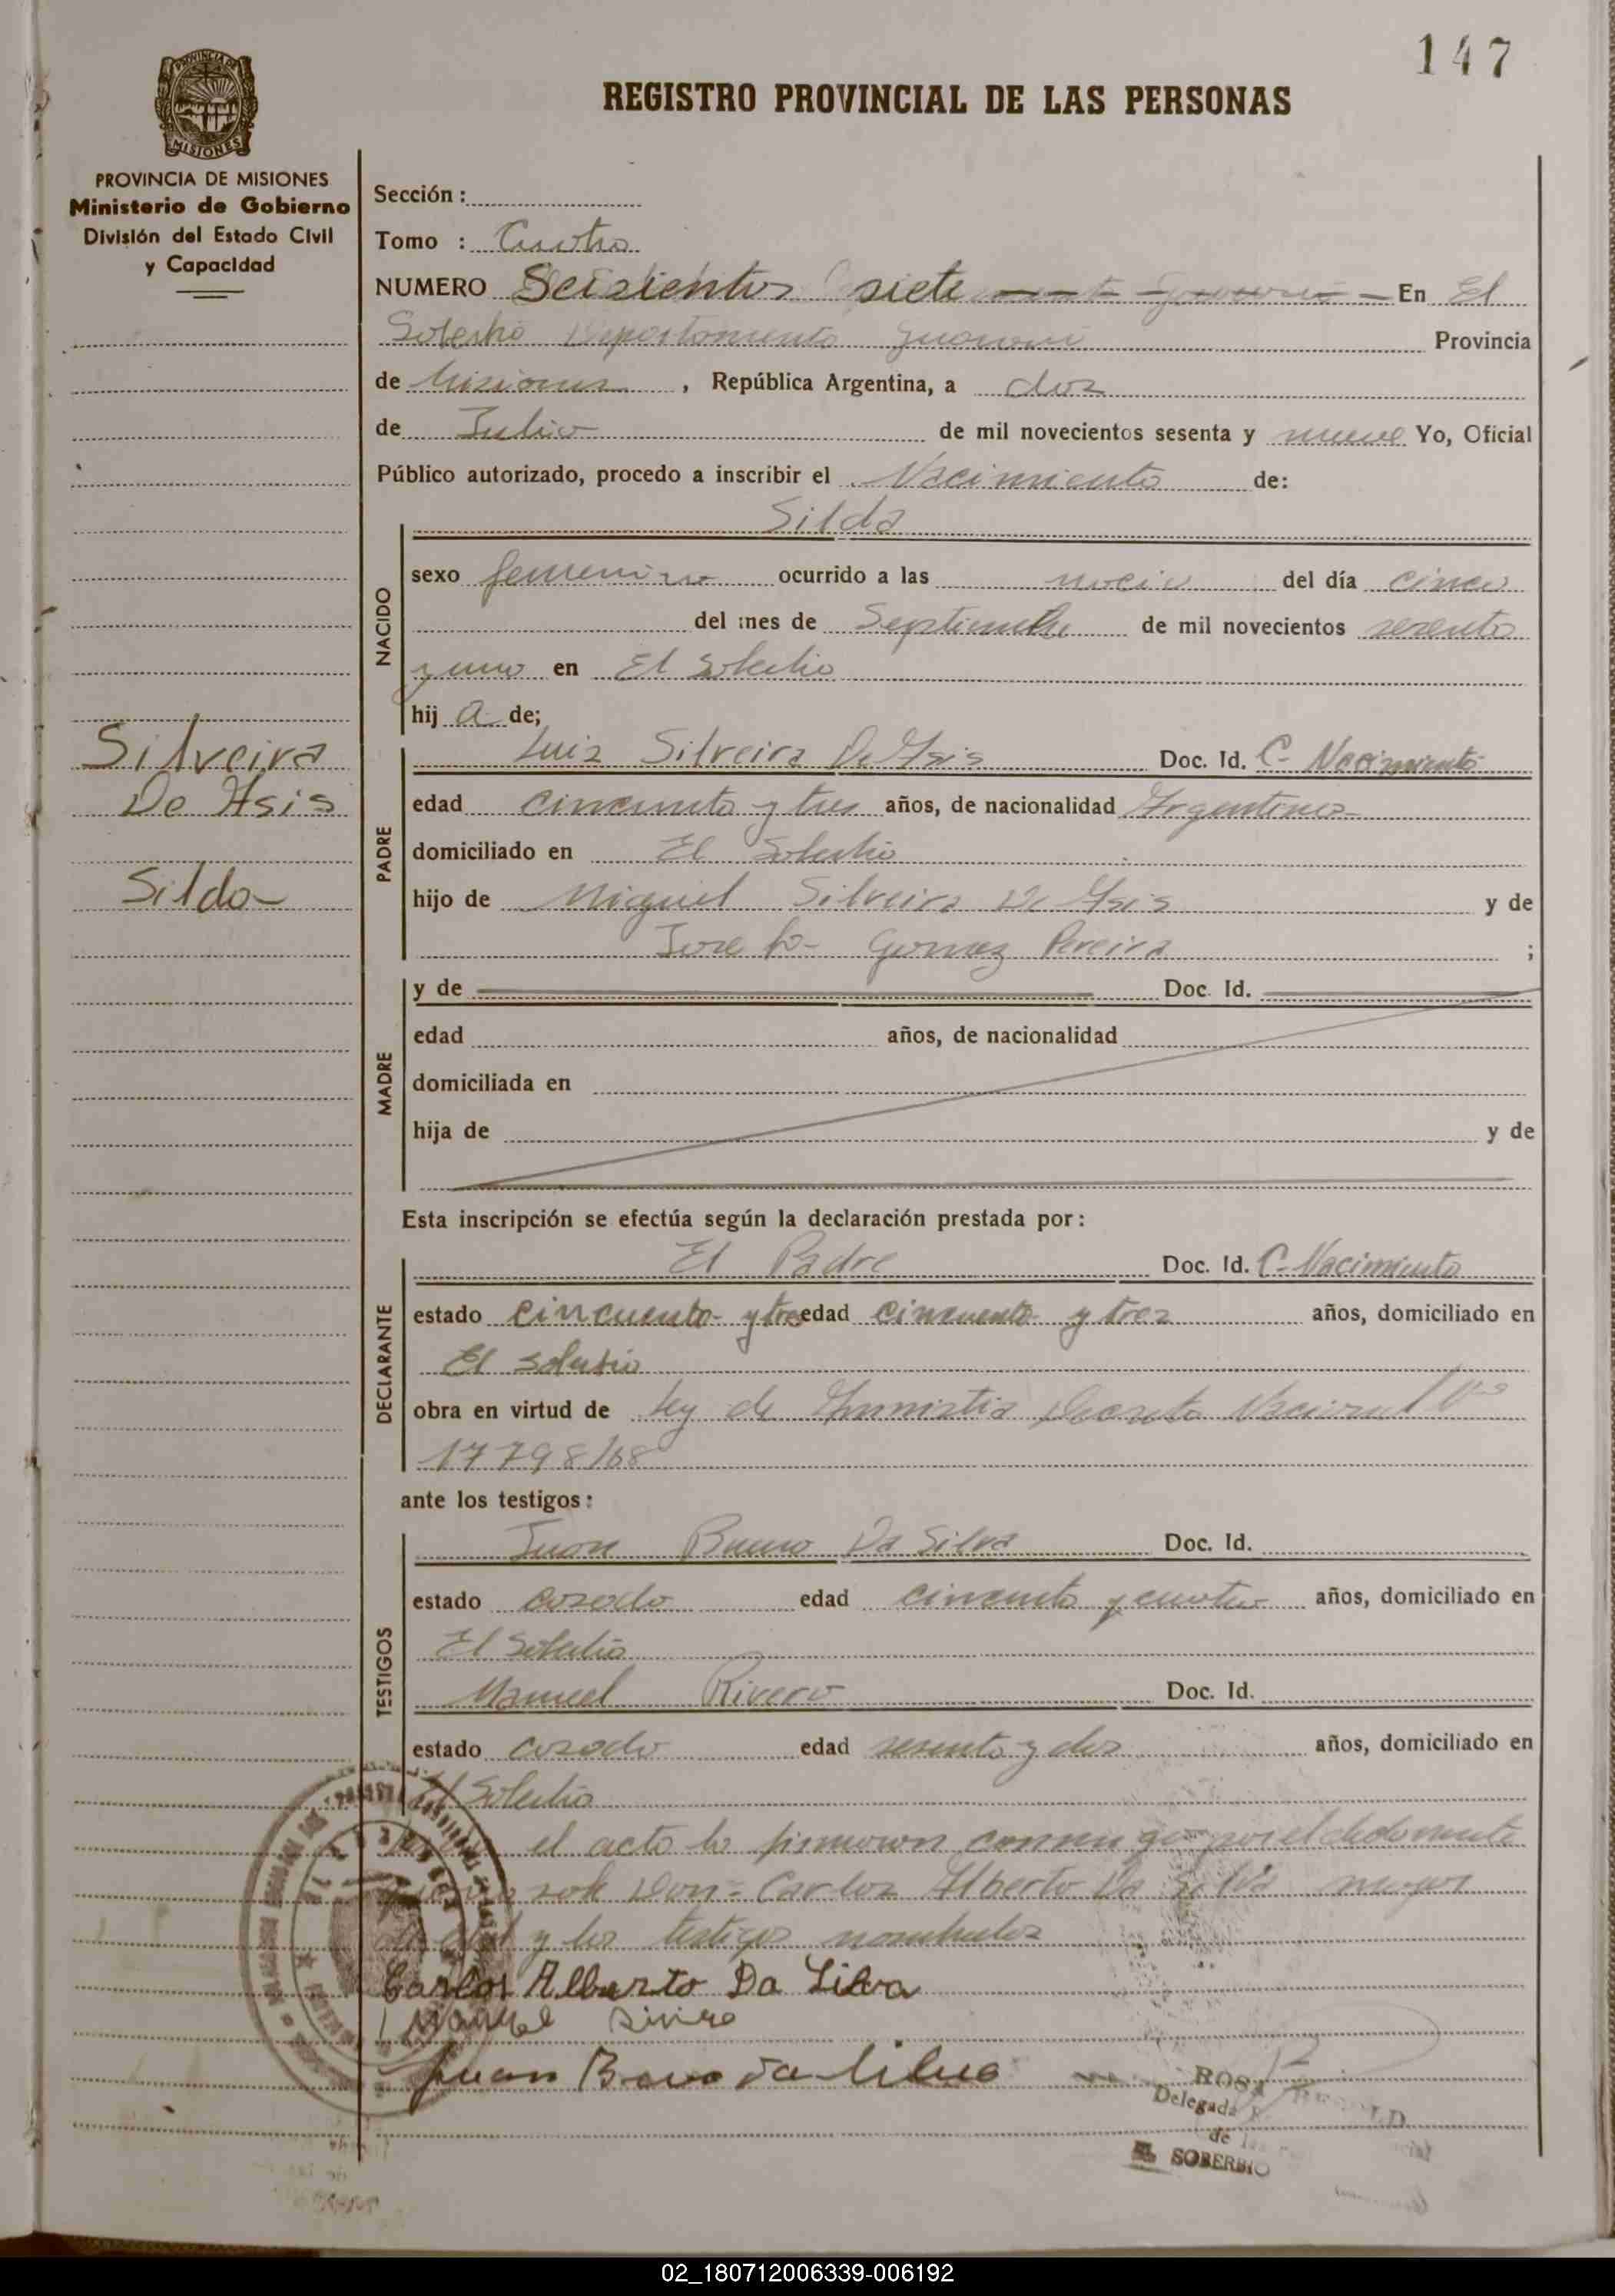 147
REGISTRO PROVINCIAL DE LAS PERSONAS
MISIONES
PROVINCIA DE MISIONES
Ministerio de Gobierno
División del Estado Civil
y Capacidad
Sección :
Tomo : Cuatro
NUMERO Seiscientos siete En El
Soberbio Departamento Guarani Provincia
de Misiones , República Argentina, a dos
de Julio de mil novecientos sesenta y nueve Yo, Oficial
Público autorizado, procedo a inscribir el Nacimiento de:
Silda
NACIDO
sexo femenino ocurrido a las del día cinco
del mes de Septiembre de mil novecientos sesenta
y uno en El Soberbio
hij a de;
Silveira
De Asis
Silda
PADRE
Luis Silveira De Asis Doc. Id. C- Nacimiento
edad cincuenta y tres años, de nacionalidad Argentina
domiciliado en El Soberbio
hijo de Miguel Silveira De Asis y de
Gomez Pereira ;
MADRE
y de Doc. Id.
edad años, de nacionalidad
domiciliada en
hija de y de
Esta inscripción se efectúa según la declaración prestada por:
DECLARANTE
El Padre Doc. Id. C- Nacimiento
estado cincuenta y tres edad cincuenta y tres años, domiciliado en
El Soberbio
obra en virtud de Ley de Amnistia Decreto Nacional Nº
17798/68
ante los testigos:
TESTIGOS
Juan Bravo Da Silva Doc. Id.
estado casado edad cincuenta y cuatro años, domiciliado en
El Soberbio
Manuel Rivero Doc. Id.
estado casado edad sesenta y dos años, domiciliado en
El Soberbio
el acto la firmaron conmigo por el declarante
Don- Carlos Alberto Da Silva mayor
de edad y los testigos nombrados
Carlos Alberto Da Silva
Manuel
Juan Bravo da Silva
ROSA
Delegada
de las
EL SOBERBIO
02_180712006339-006192